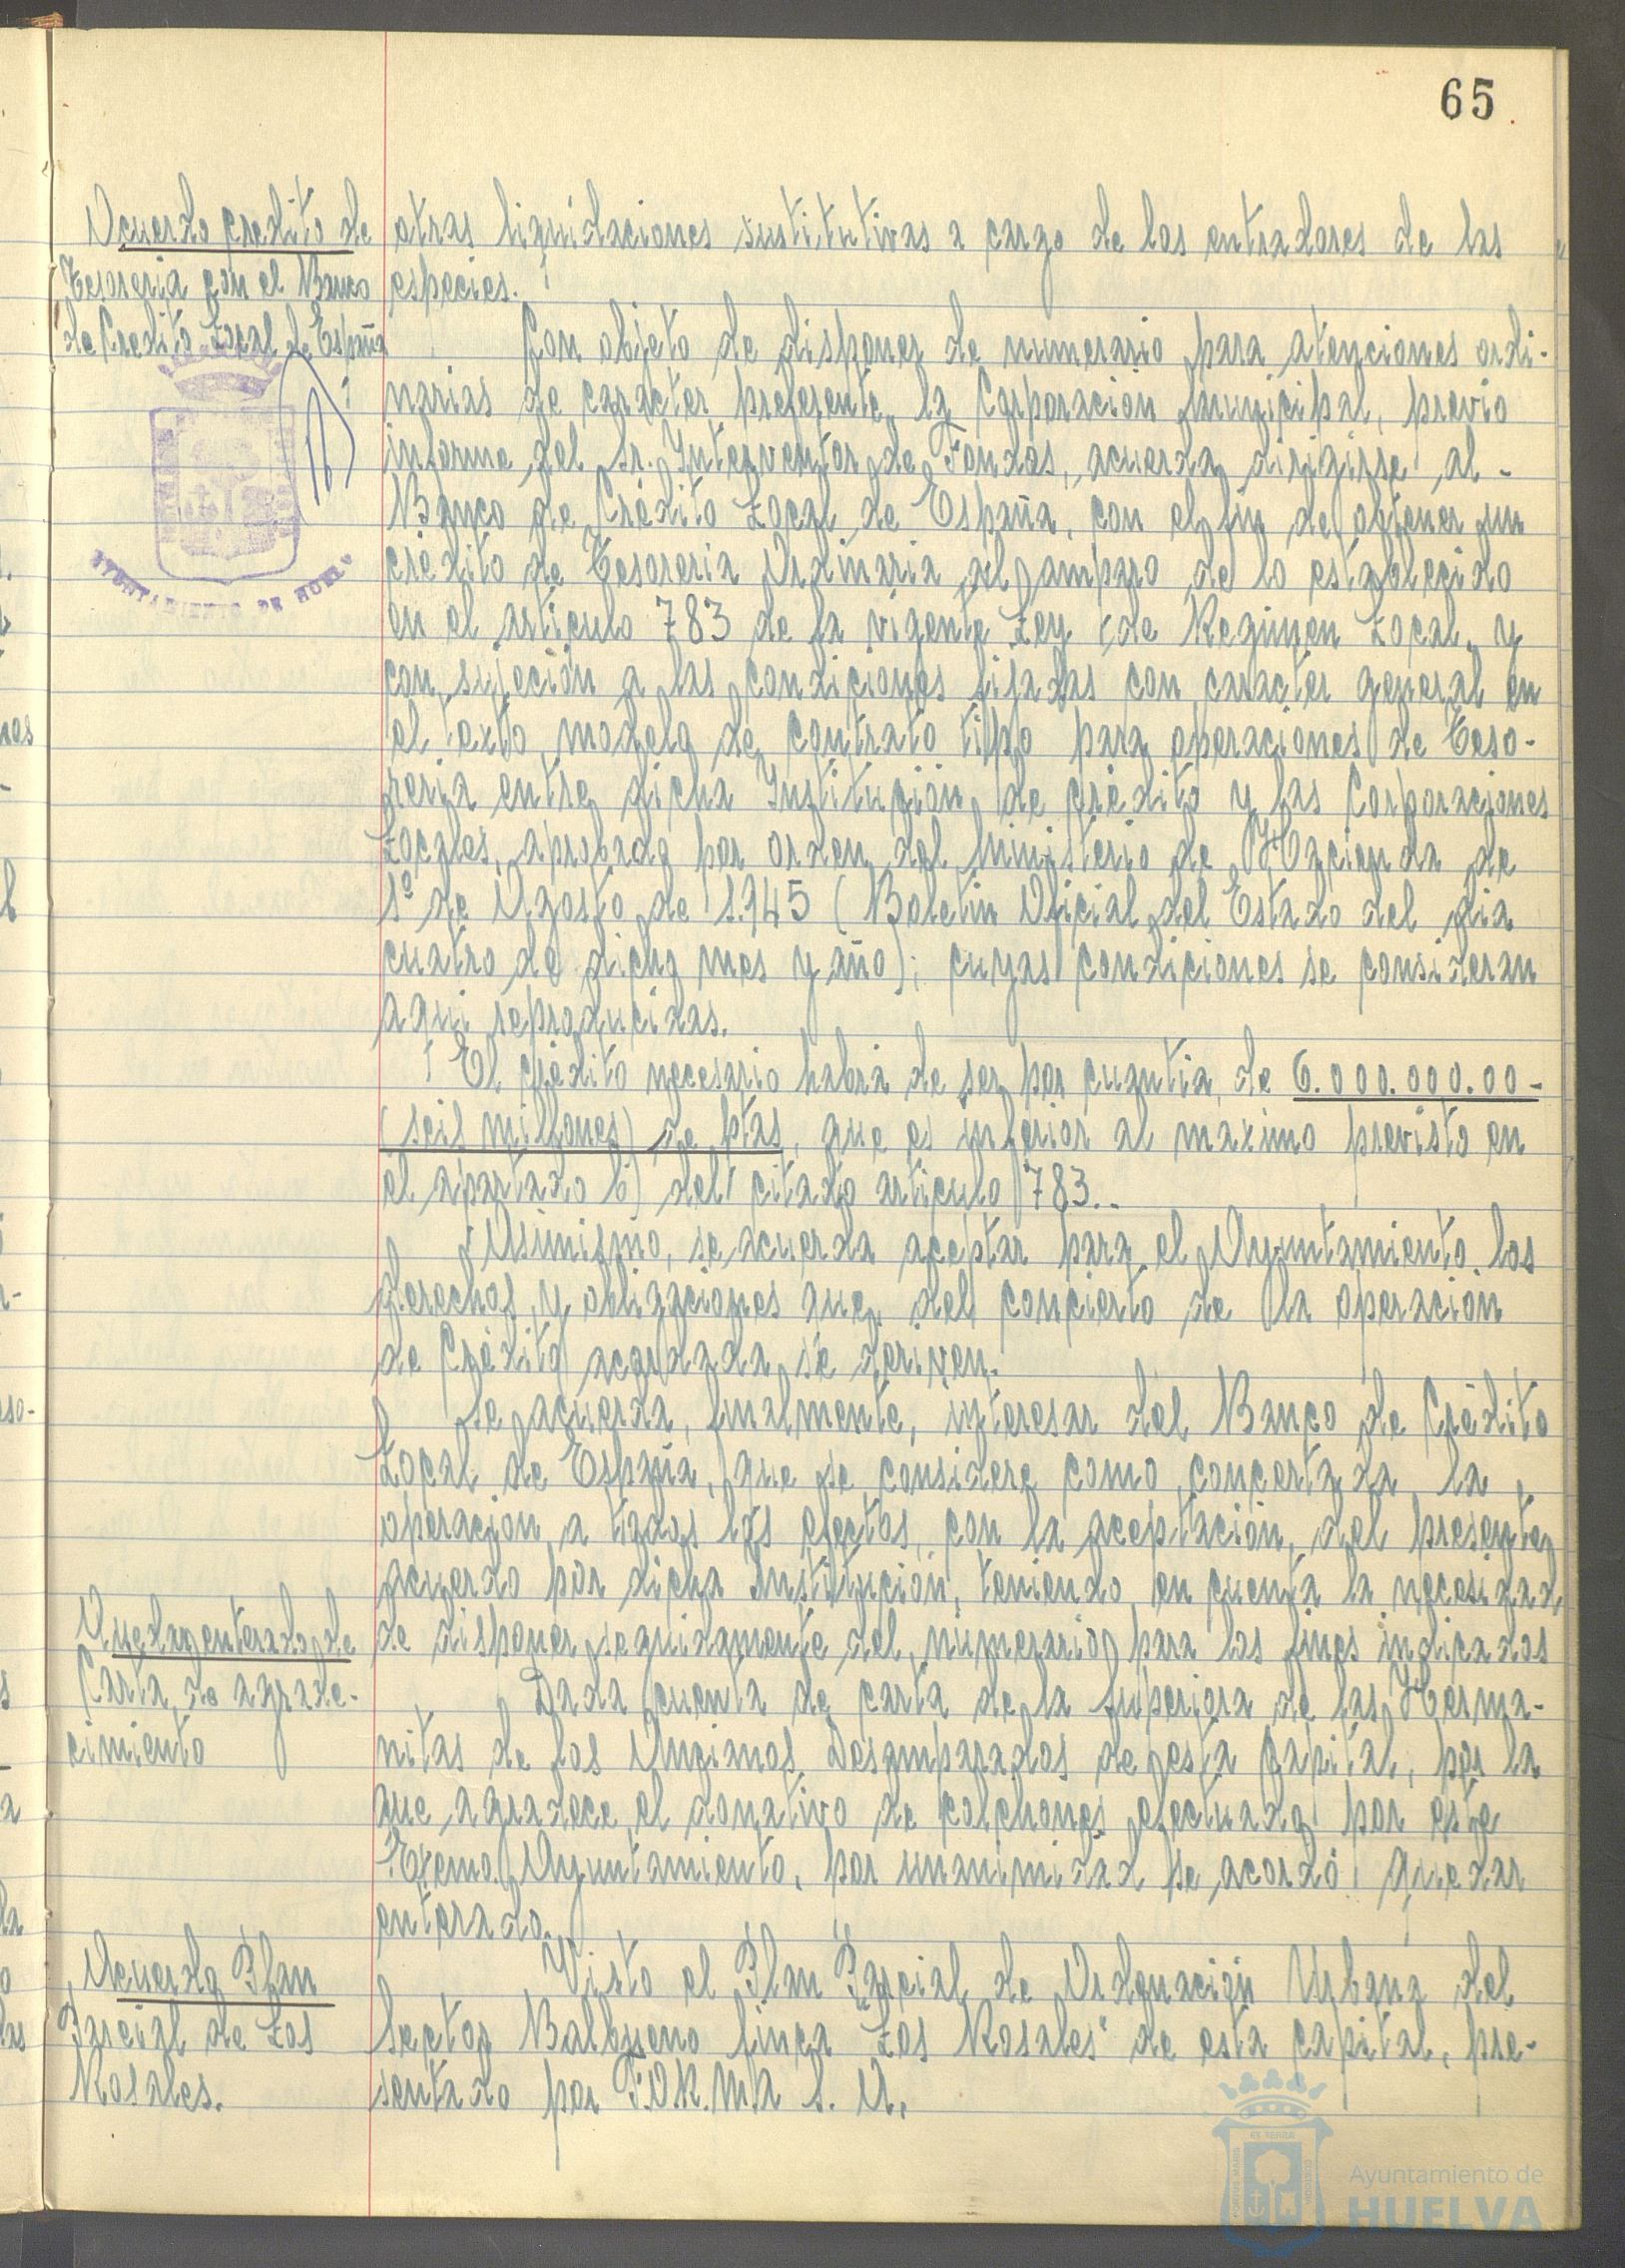 65
Acuerdo credito de
Tesoreria con el Banco
de Credito Local de España
AYUNTAMIENTO DE HUELVA
otras liquidaciones sustitutivas a cargo de los entradores de las
especies.
Con objeto de disponer de numerario para atenciones ordi-
narias de caracter preferente, la Corporacion Municipal, previo
informe del Sr. Interventor de Fondos, acuerda dirigirse al -
Banco de Crédito Local de España, con el fin de obtener un
crédito de Tesoreria Ordinaria al amparo de lo establecido
en el articulo 783 de la vigente Ley de Regimen Local, y
con sujeción a las condiciones fijadas con caracter general en
el texto modelo de contrato tipo para operaciones de Teso-
reria entre dicha Institución de crédito y las Corporaciones
Locales, aprobado por orden del Ministerio de Hacienda de
1º de Agosto de 1.945 (Boletin Oficial del Estado del dia
cuatro de dicho mes y año); cuyas condiciones se consideran
aqui reproducidas.
El crédito necesario habrá de ser por cuantia de 6.000.000.00-
(seis millones) de ptas, que es inferior al maximo previsto en
el apartado b) del citado articulo 783..
Asimismo, se acuerda aceptar para el Ayuntamiento los
derechos y obligaciones que del concierto de la operación
de Crédito acordada se deriven.
Se acuerda, finalmente, interesar del Banco de Crédito
Local de España, que se considere como concertada la
operacion a todos los efectos, con la aceptación del presente
acuerdo por dicha Institución, teniendo en cuenta la necesidad
de disponer seguidamente del numerario para los fines indicados
Quedar enterado de
Carta de agrade-
cimiento
Dada cuenta de carta de la Superiora de las Herma-
nitas de los Ancianos Desamparados de esta Capital, por la
que agradece el donativo de colchones efectuado por este
Excmo. Ayuntamiento, por unanimidad se acordó quedar
enterado.
Acuerdo Plan
Parcial de Los
Rosales.
Visto el Plan Parcial de Ordenación Urbana del
Sector Balbueno finca Los Rosales" de esta capital, pre-
sentado por F.O.R.M.A S. A.
Ayuntamiento de
HUELVA